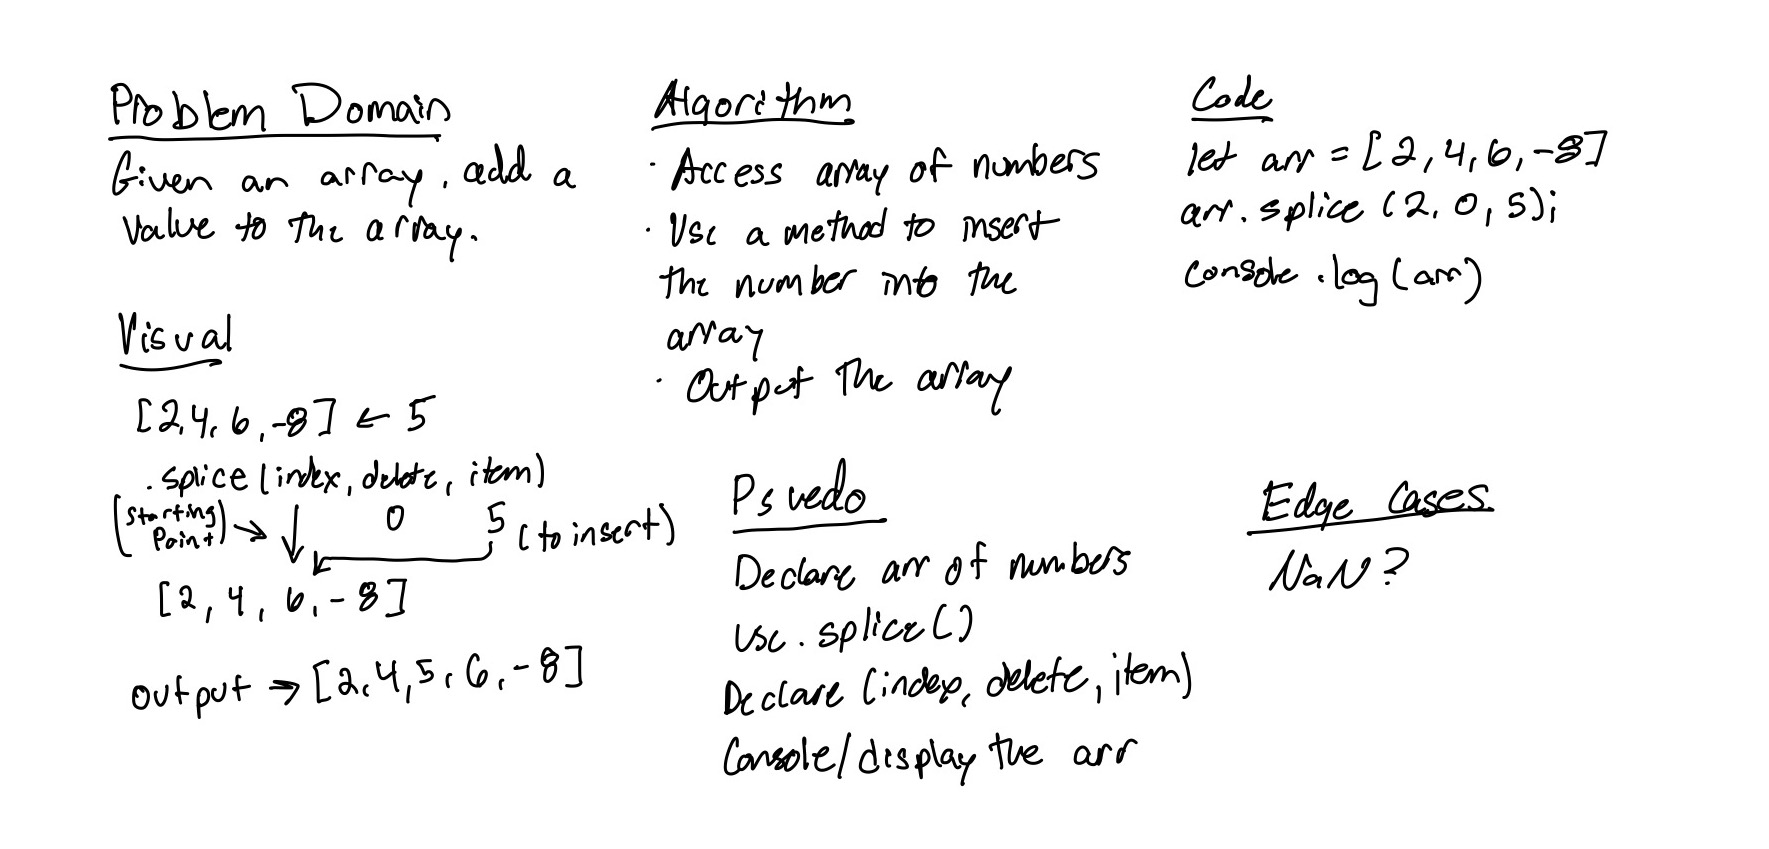 Problem Domain
Given an array, add a
value to the array.
Visual
[2,4,6,-8] ← 5
.splice(index, delete, item)
(Starting
Point) → ↓ 0 5 (to insert)
[2, 4, 6, -8]
output → [2,4,5,6,-8]
Algorithm
· Access array of numbers
· Use a method to insert
the number into the
array
· Output the array
Psuedo
Declare arr of numbers
use .splice()
Declare (index, delete, item)
Console/display the arr
Code
let arr = [2,4,6,-8]
arr.splice(2,0,5);
console.log(arr)
Edge Cases
NaN?